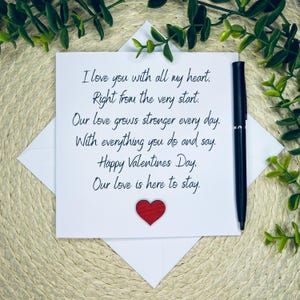 I love you with all my heart.
Right from the very start.
Our love grows stronger every day.
With everything you do and say.
Happy Valentines Day.
Our love is here to stay.